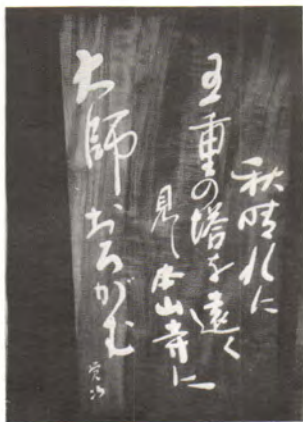 秋晴れに
五重の塔を遠く
見し本山寺に
大師おろがむ